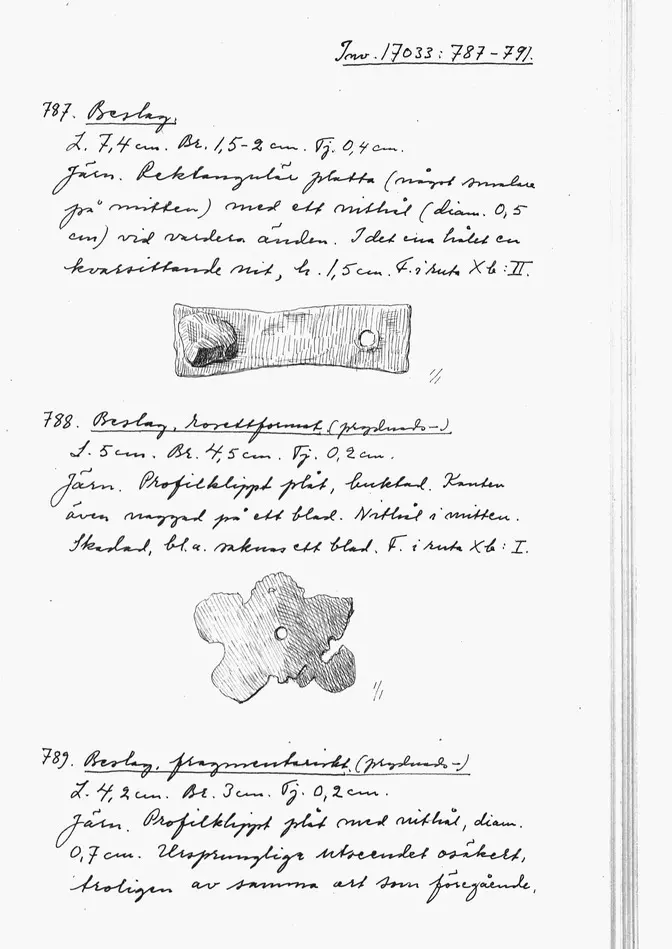 Inv. 17033: 787-791.
787. Beslag.
L. 7,4 cm. Br. 1,5-2 cm. Tj. 0,4 cm.
Järn. Rektangulär platta (något smalare
på mitten) med ett nithål (diam. 0,5
cm) vid vardera änden. I det ena hålet en
kvarsittande nit, h. 1,5 cm. F. i ruta Xb: II.
1/1
788. Beslag, rosettformat (prydnads-)
L. 5 cm. Br. 4,5 cm. Tj. 0,2 cm.
Järn. Profilklippt plåt, bucklad. Kanten
även naggad på ett blad. Nithål i mitten.
Skadad, bl.a. saknas ett blad. F. i ruta Xb: I.
1/1
789. Beslag, fragmentariskt (prydnads-)
L. 4,2 cm. Br. 3 cm. Tj. 0,2 cm.
Järn. Profilklippt plåt med nithål, diam.
0,7 cm. Ursprunglige utseendet osäkert,
troligen av samma art som föregående.